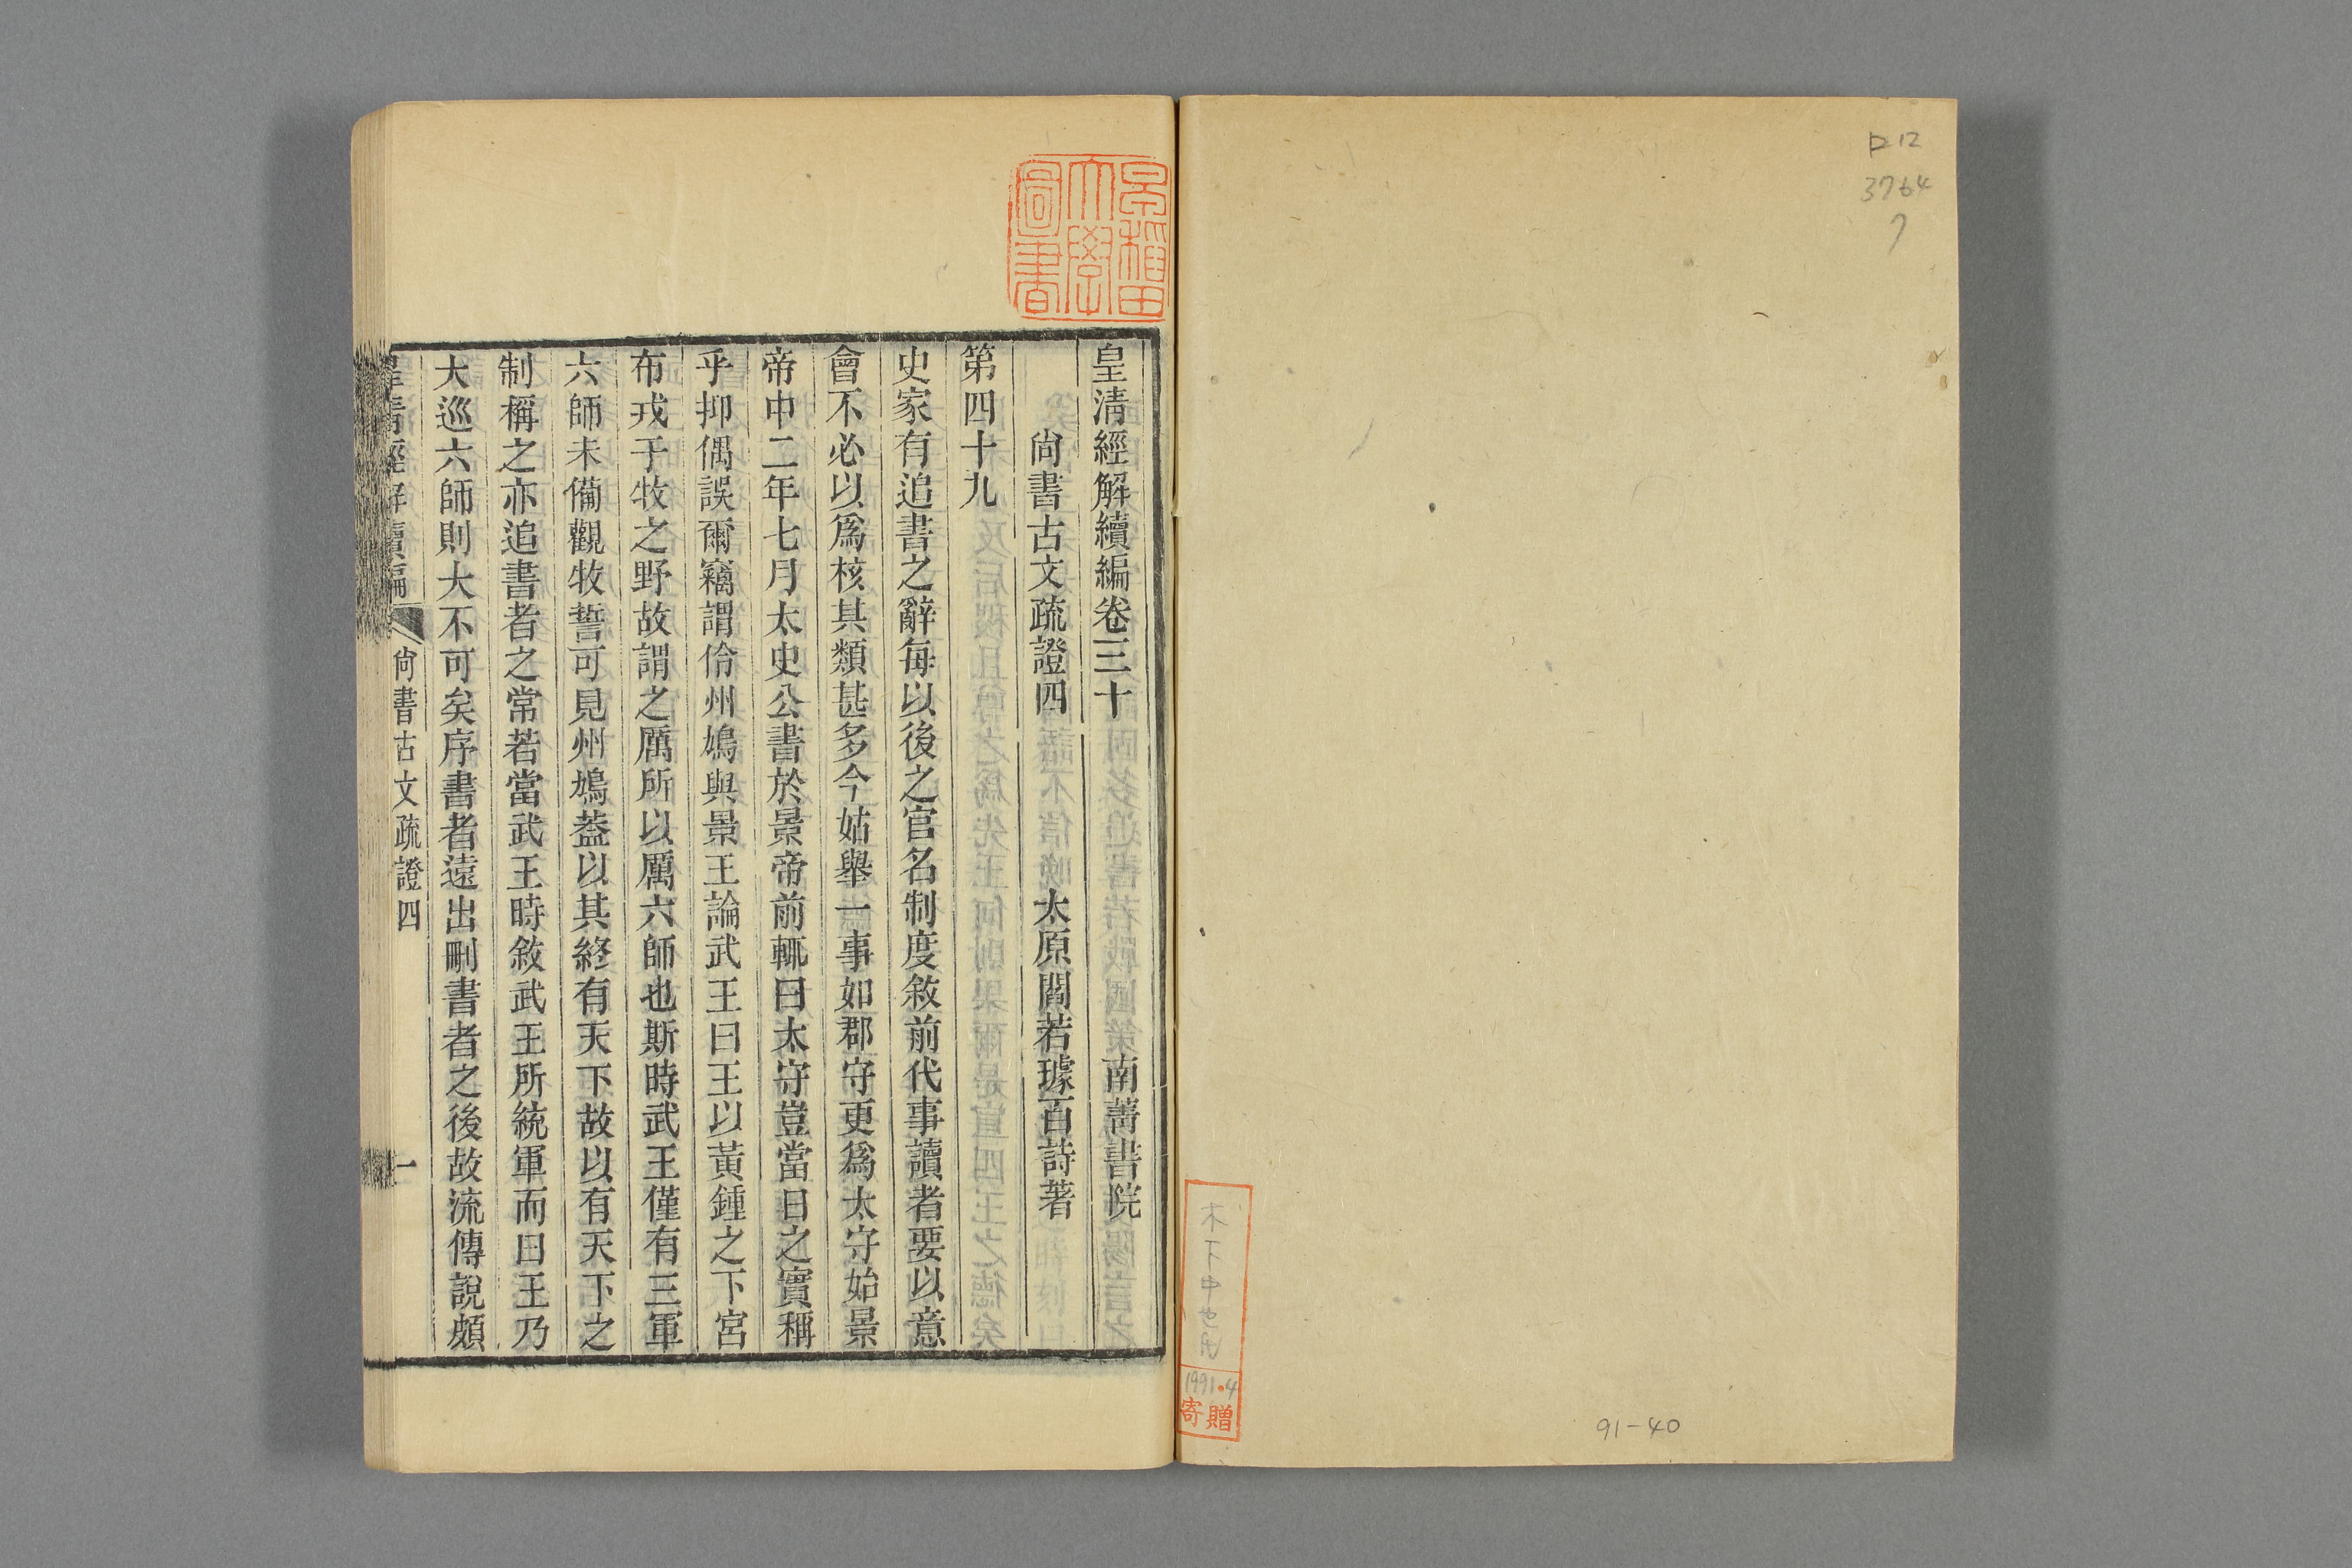 ロ12
3764
7
91-40
1991.4
寄贈
早稲田大學圖書
皇清經解續編卷三十 南菁書院
尚書古文疏證四 太原閻若璩百詩著
第四十九
史家有追書之辭每以後之官名制度敘前代事讀者要以意
會不必以爲核其類甚多今姑舉一事如郡守更爲太守始景
帝中二年七月太史公書於景帝前輒曰太守豈當日之實稱
乎抑偶誤爾竊謂伶州鳩與景王論武王曰王以黃鍾之下宮
布戎于牧之野故謂之厲所以厲六師也斯時武王僅有三軍
六師未備觀牧誓可見州鳩葢以其終有天下故以有天下之
制稱之亦追書者之常若當武王時敘武王所統軍而曰王乃
大巡六師則大不可矣序書者遠出刪書者之後故流傳說頗
皇清經解續編 尚書古文疏證四 一